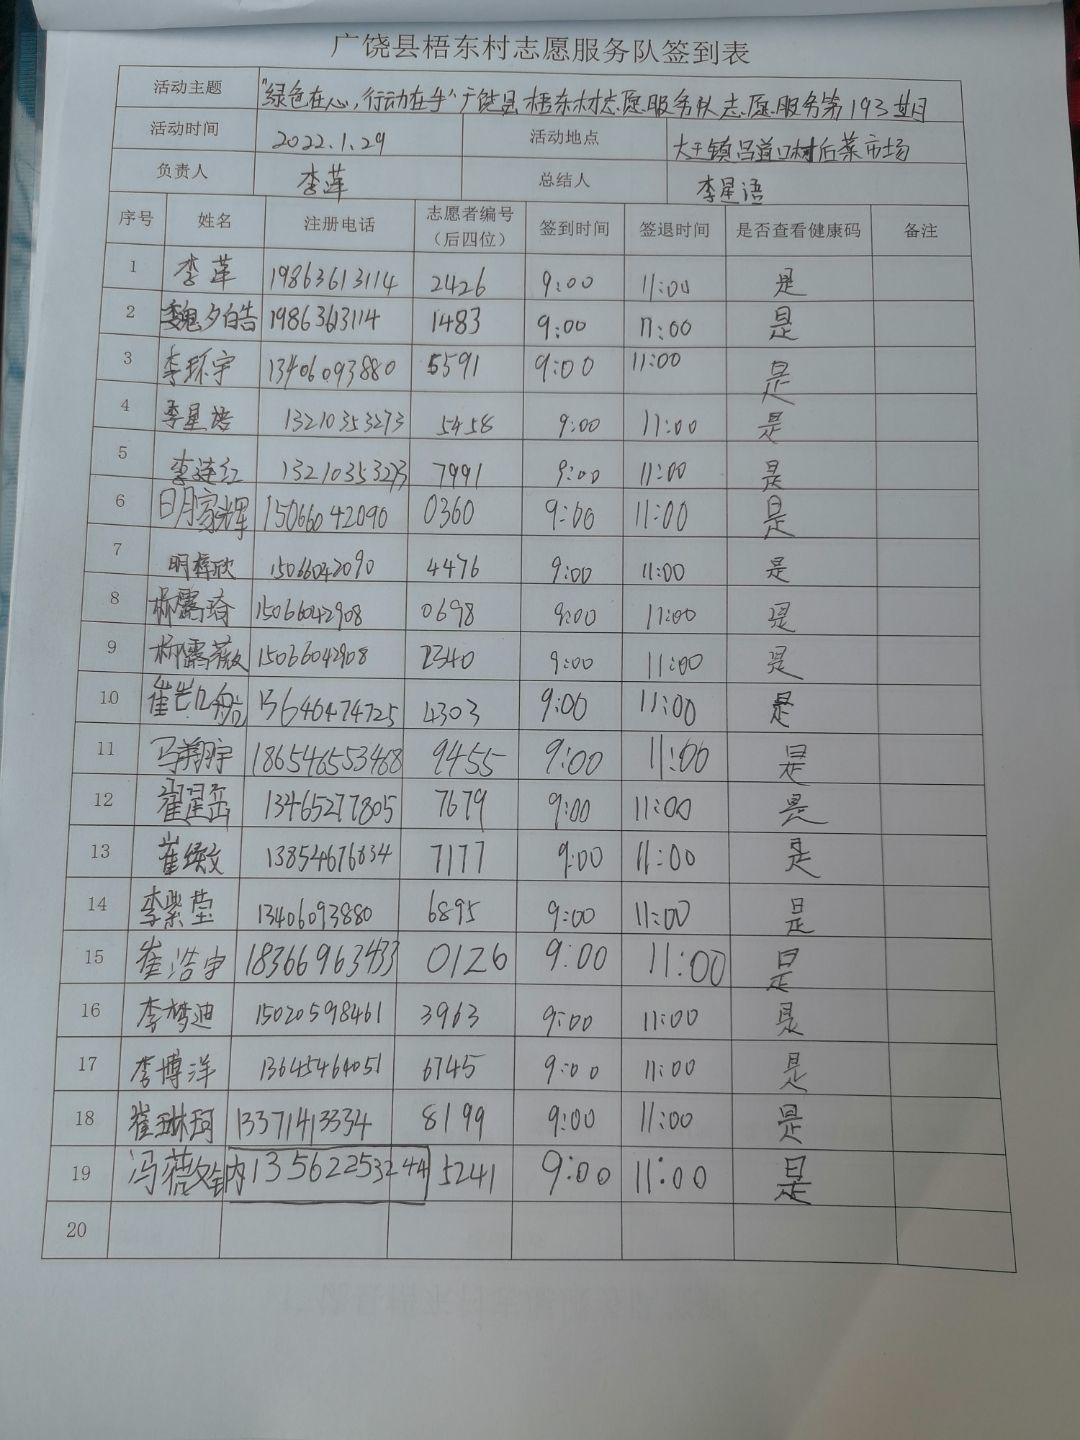 广饶县梧东村志愿服务队签到表
活动主题 "绿色在心,行动在手"广饶县梧东村志愿服务队志愿服务第193期
活动时间 2022.1.29 活动地点 大王镇吕道口村后菜市场
负责人 李莲 总结人 李星语
序号 姓名 注册电话 志愿者编号(后四位) 签到时间 签退时间 是否查看健康码 备注
1 李莲 19863613114 2426 9:00 11:00 是
2 魏夕皓 19863613114 1483 9:00 11:00 是
3 李环宇 13406093880 5591 9:00 11:00 是
4 李星语 13210353273 5458 9:00 11:00 是
5 李连红 13210353273 7991 9:00 11:00 是
6 明家辉 15066042090 0360 9:00 11:00 是
7 明梓欣 15066042090 4476 9:00 11:00 是
8 柳露琦 15066042908 0698 9:00 11:00 是
9 柳露薇 15066042908 2340 9:00 11:00 是
10 崔 13646474725 4303 9:00 11:00 是
11 马翔宇 186546553468 9455 9:00 11:00 是
12 崔星岳 13465277805 7679 9:00 11:00 是
13 崔 13854676834 7177 9:00 11:00 是
14 李紫莹 13406093880 6895 9:00 11:00 是
15 崔浩宇 18366963433 0126 9:00 11:00 是
16 李梦迪 15020598461 3963 9:00 11:00 是
17 李博洋 13645464051 6745 9:00 11:00 是
18 崔琳珂 13371413334 8199 9:00 11:00 是
19 冯薇 13562253244 5241 9:00 11:00 是
20